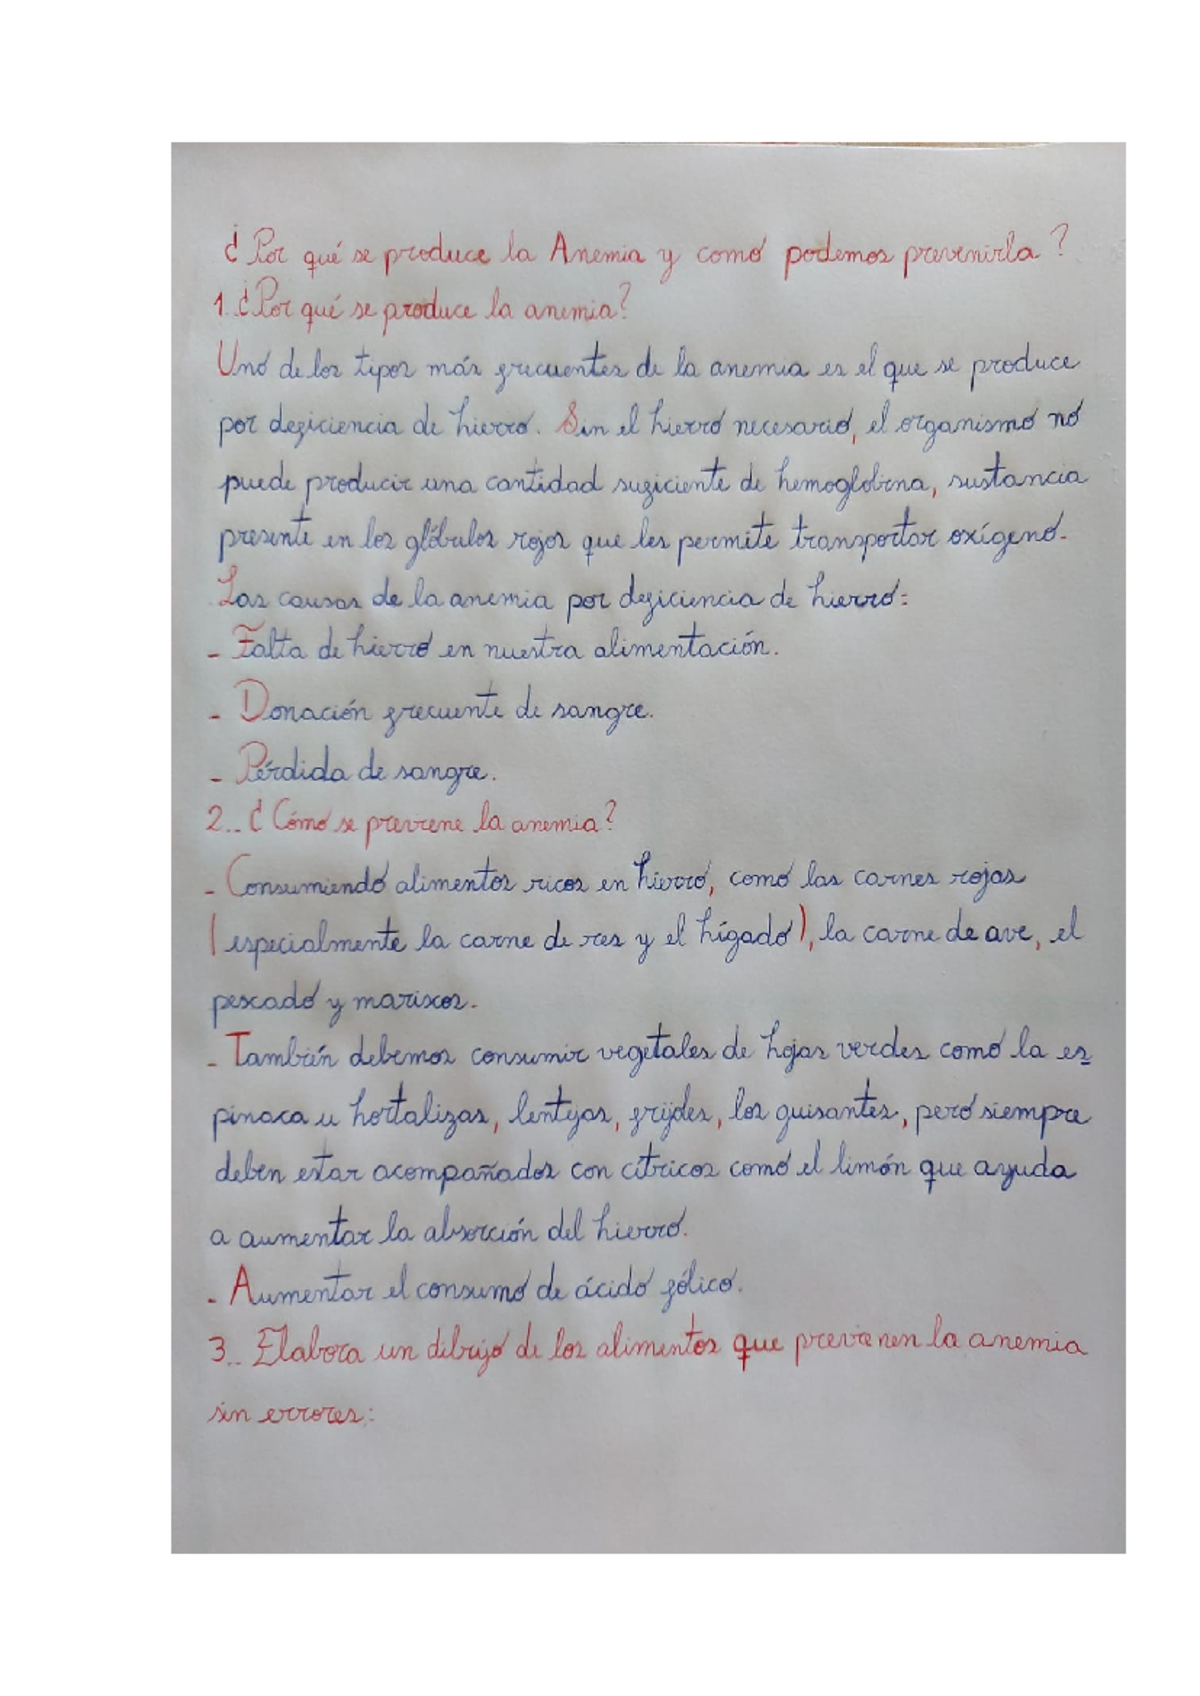 ¿Por qué se produce la Anemia y como podemos prevenirla?
1. ¿Por qué se produce la anemia?
Uno de los tipos más frecuentes de la anemia es el que se produce
por deficiencia de hierro. Sin el hierro necesario, el organismo no
puede producir una cantidad suficiente de hemoglobina, sustancia
presente en los glóbulos rojos que les permite transportar oxígeno.
Las causas de la anemia por deficiencia de hierro:
- Falta de hierro en nuestra alimentación.
- Donación frecuente de sangre.
- Pérdida de sangre.
2.. ¿Cómo se previene la anemia?
- Consumiendo alimentos ricos en hierro, como las carnes rojas
(especialmente la carne de res y el hígado), la carne de ave, el
pescado y mariscos.
- También debemos consumir vegetales de hojas verdes como la es
pinaca u hortalizas, lentejas, frijoles, los guisantes, pero siempre
deben estar acompañados con cítricos como el limón que ayuda
a aumentar la absorción del hierro.
- Aumentar el consumo de ácido fólico.
3.. Elabora un dibujo de los alimentos que previenen la anemia
sin errores: